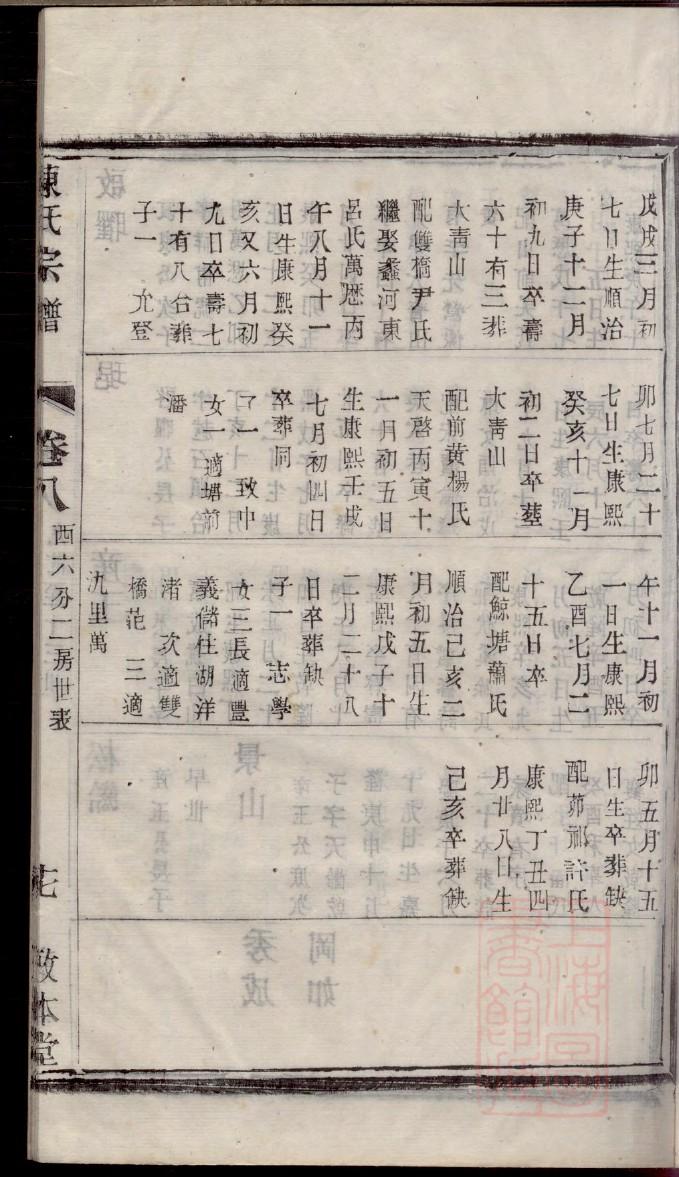 戊戌三月初
七日生順治
庚子十二月
初九日卒壽
六十有三葬
大青山
配雙橋尹氏
繼娶蠡河東
呂氏萬歷丙
午八月十一
日生康熙癸
亥又六月初
九日卒壽七
十有八合葬
子一 允登
卯七月二十
七日生康熙
癸亥十一月
初二日卒塟
大靑山
配前黃楊氏
天啓丙寅十
一月初五日
生康熙壬戌
七月初四日
卒葬同
子一 致中
女一適塘前
潘
午十一月初
一日生康熙
乙酉七月二
十五日卒
配鯨塘蕭氏
順治己亥二
月初五日生
康熙戊子十
二月二十八
日卒葬缺
子一 志學
女三長適豐
義儲仕湖洋
渚 次適雙
橋范 三適
九里萬
卯五月十五
日生卒葬缺
配茆祁許氏
康熙丁丑四
月廿八日生
己亥卒葬缺
陳氏宗譜
卷八
西六分二房世表
敦本堂